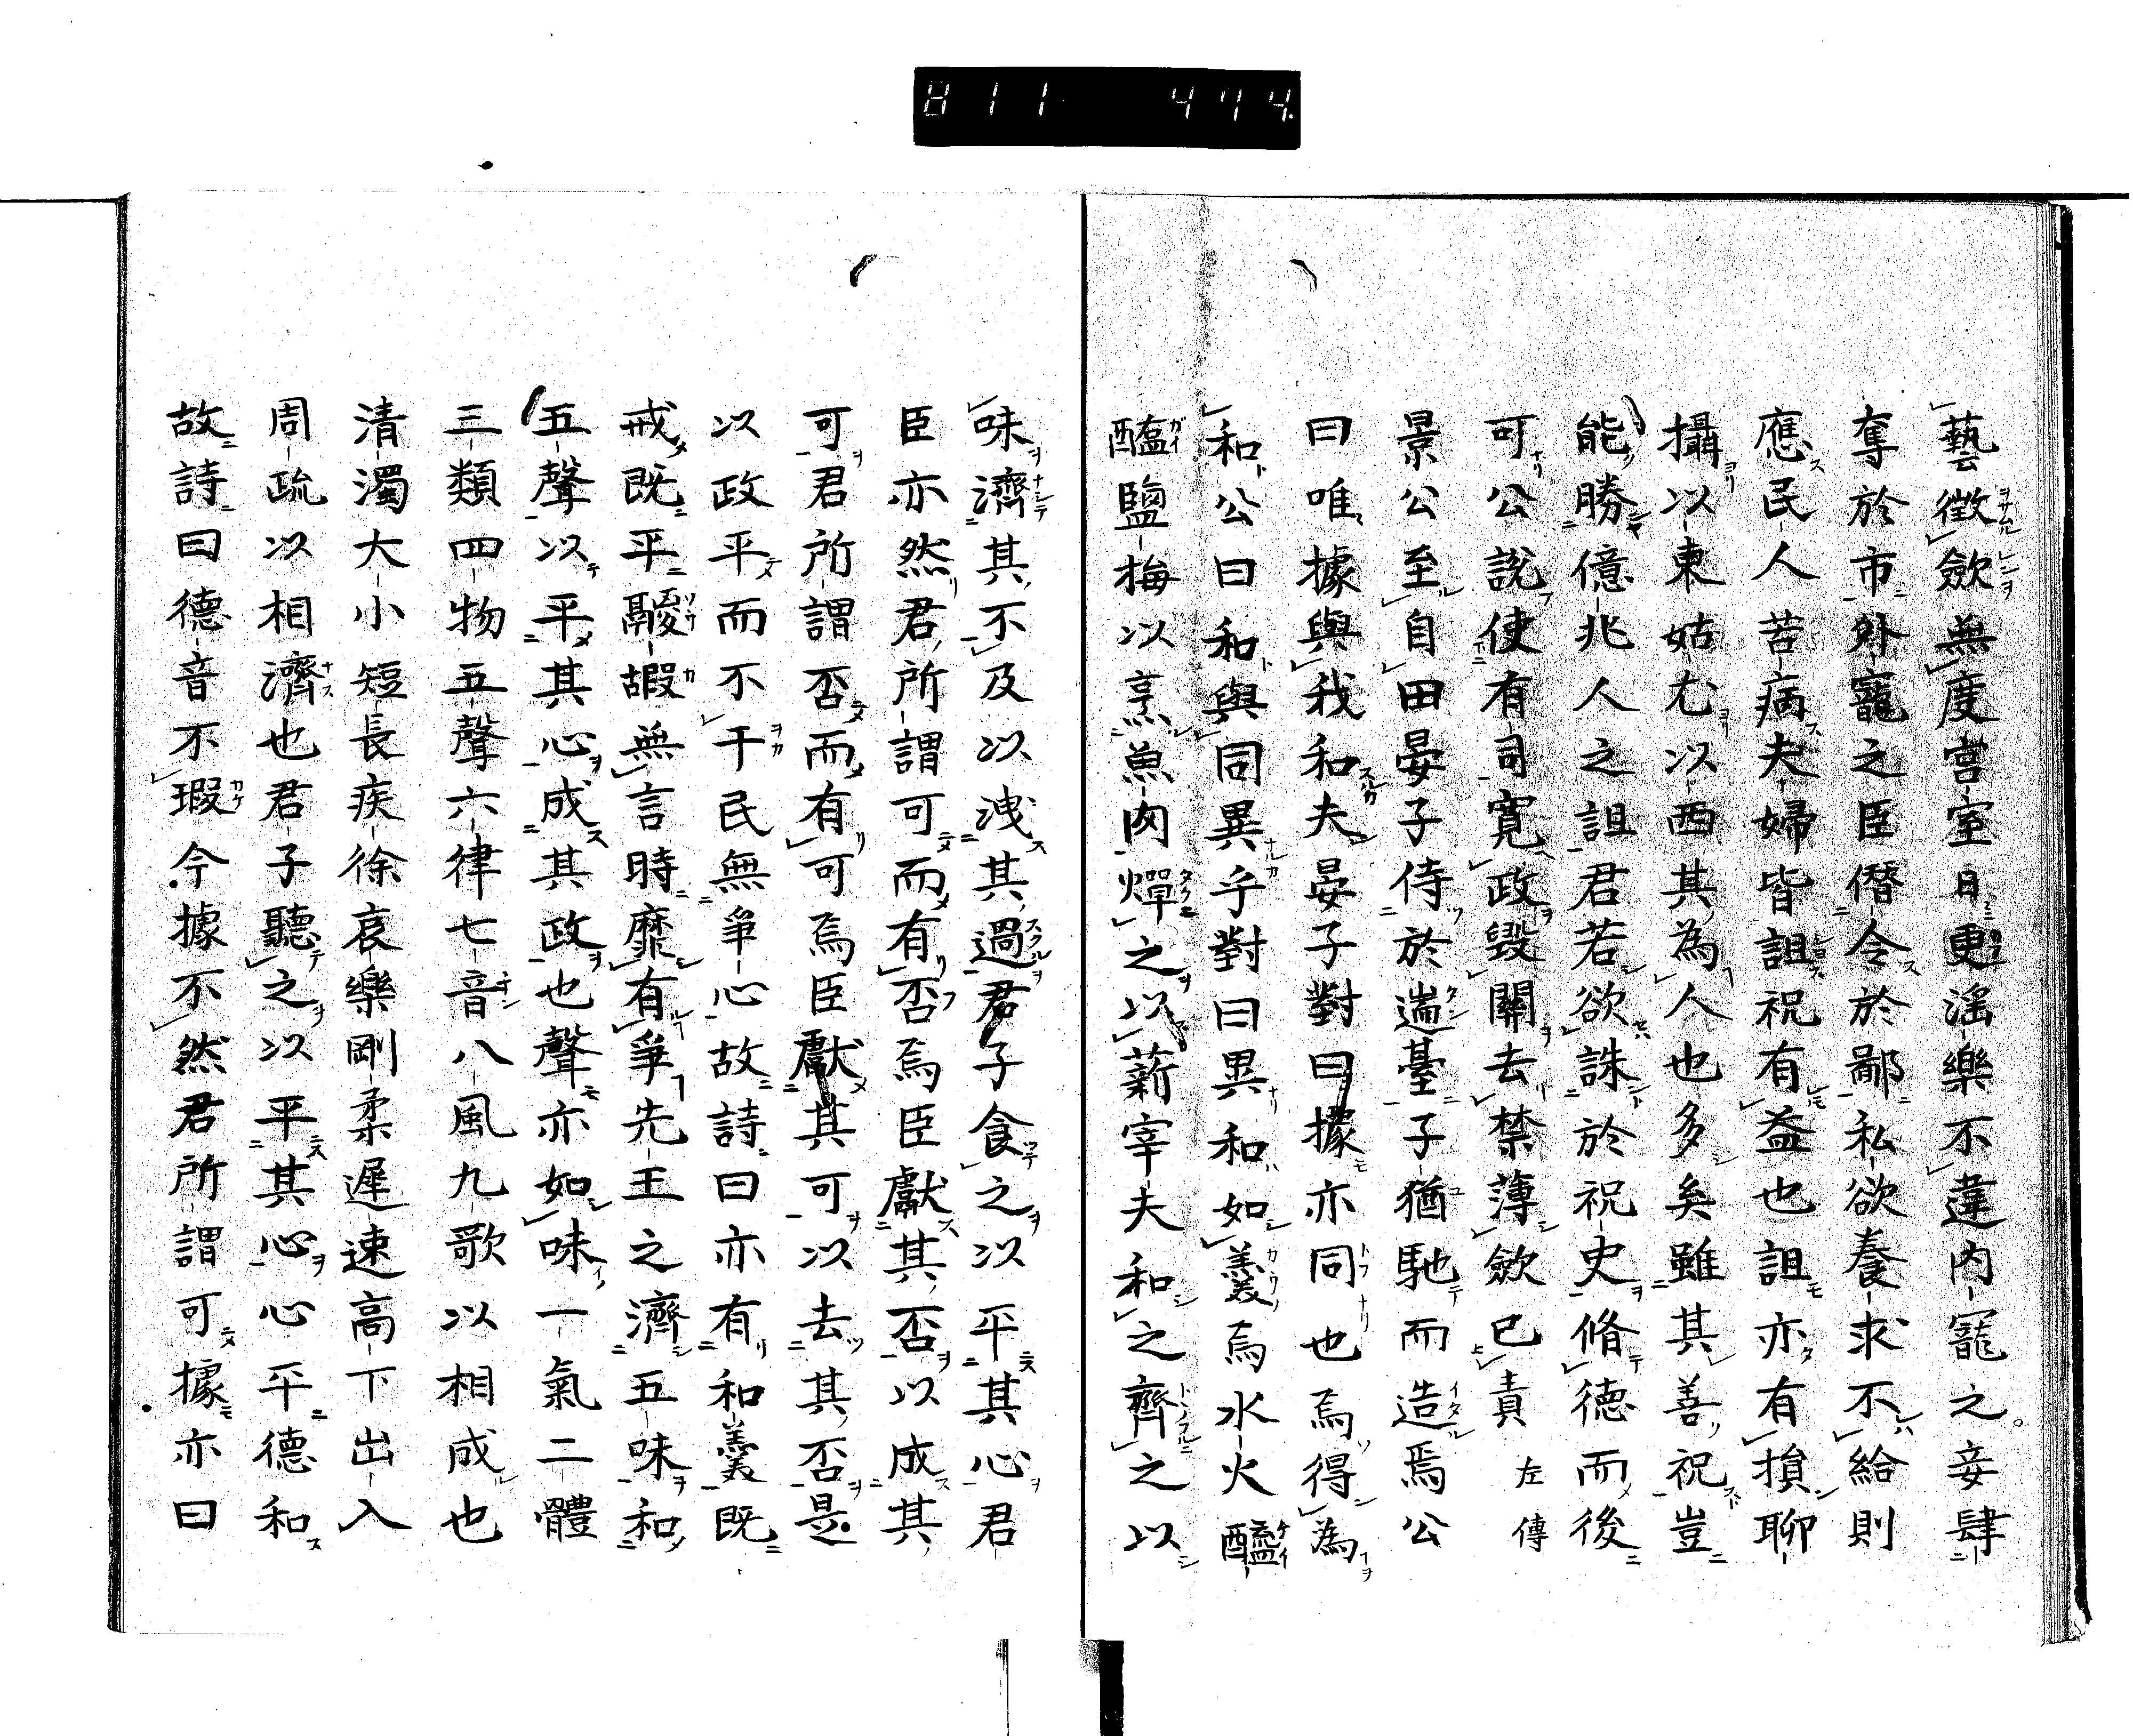 811 444.
藝徴斂無度宮室日更淫樂不違内寵之妾肆
奪於市外寵之臣僭令於鄙私欲養求不給則
應民人苦病夫婦皆詛祝有益也詛亦有損聊
攝以東姑尤以西其為人也多矣雖其善祝豈
能勝億兆人之詛君若欲誅於祝史脩德而後
可公說使有司寛政毀關去禁薄斂已責 左傳
景公至自田晏子侍於遄臺子猶馳而造焉公
曰唯據與我和夫晏子對曰據亦同也焉得為
和公曰和與同異乎對曰異和如羹焉水火醯
醢鹽梅以烹魚肉燀之以薪宰夫和之齊之以
味濟其不及以洩其過君子食之以平其心君
臣亦然君所謂可而有否焉臣獻其否以成其
可君所謂否而有可焉臣獻其可以去其否是
以政平而不干民無爭心故詩曰亦有和羹既
戒既平鬷嘏無言時靡有爭先王之濟五味和
五聲以平其心成其政也聲亦如味一氣二體
三類四物五聲六律七音八風九歌以相成也
清濁大小短長疾徐哀樂剛柔遲速高下出入
周疏以相濟也君子聽之以平其心心平德和
故詩曰德音不瑕今據不然君所謂可據亦曰